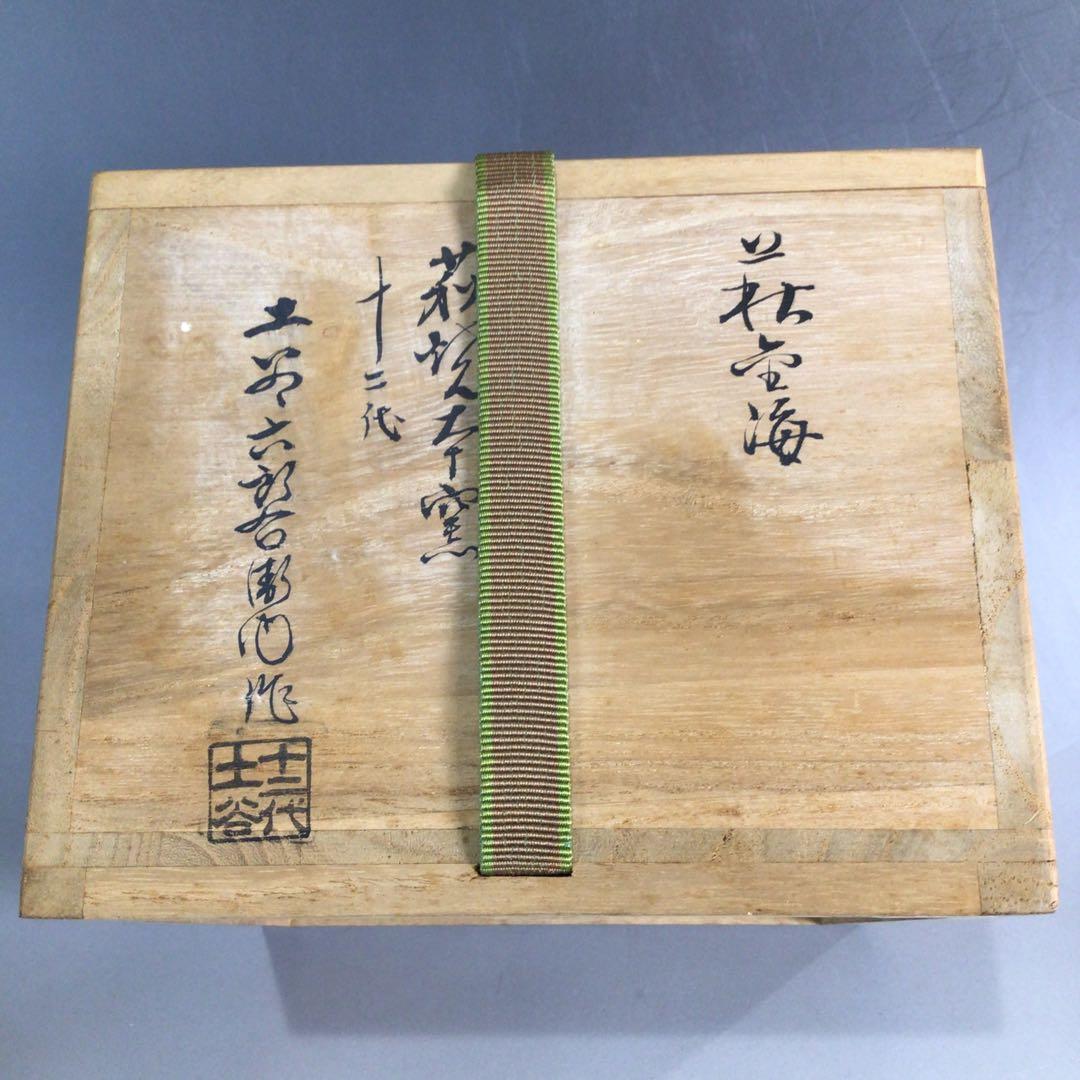 萩金海
萩焼夲窯
十二代
土谷六郎右衛門作
十二代
土谷